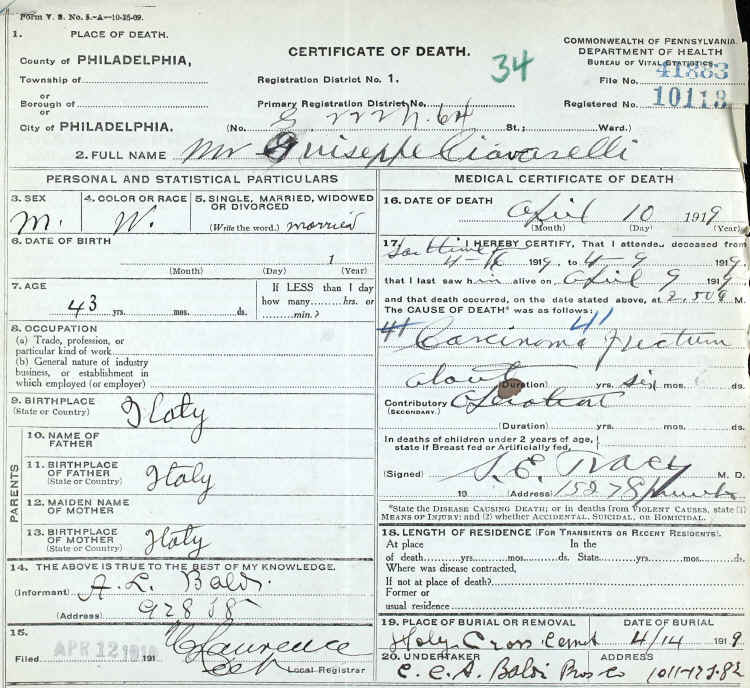 Form V. S. No. 5.-A-10-25-09.
1. PLACE OF DEATH.
County of PHILADELPHIA,
Township of
or
Borough of
or
City of PHILADELPHIA.
CERTIFICATE OF DEATH.
Registration District No. 1.
Primary Registration District No.
(No. St.; Ward.)
34
COMMONWEALTH OF PENNSYLVANIA
DEPARTMENT OF HEALTH
BUREAU OF VITAL STATISTICS
File No. 41883
Registered No. 10113
2. FULL NAME Mr Guiseppe Ciavarelli
PERSONAL AND STATISTICAL PARTICULARS
3. SEX M.
4. COLOR OR RACE W.
5. SINGLE, MARRIED, WIDOWED OR DIVORCED
(Write the word.) married
6. DATE OF BIRTH
1
(Month) (Day) (Year)
7. AGE
43 yrs. mos. ds.
If LESS than 1 day
how many hrs. or
min.?
8. OCCUPATION
(a) Trade, profession, or
particular kind of work
(b) General nature of industry
business, or establishment in
which employed (or employer)
9. BIRTHPLACE
(State or Country) Italy
PARENTS
10. NAME OF
FATHER
11. BIRTHPLACE
OF FATHER
(State or Country) Italy
12. MAIDEN NAME
OF MOTHER
13. BIRTHPLACE
OF MOTHER
(State or Country) Italy
14. THE ABOVE IS TRUE TO THE BEST OF MY KNOWLEDGE.
(Informant) A. L. Baldi
(Address) 928 S 8
15.
Filed APR 12 1919 191
Local Registrar
MEDICAL CERTIFICATE OF DEATH
16. DATE OF DEATH
April 10 1919
(Month) (Day) (Year)
17. I HEREBY CERTIFY, That I attended deceased from
1919, to 4-9 1919,
that I last saw him alive on April 9 1919
and that death occurred, on the date stated above, at 2.50 M.
The CAUSE OF DEATH* was as follows:
41 41
Carcinoma of rectum
about (Duration) yrs. six mos. ds.
Contributory
(SECONDARY.)
(Duration) yrs. mos. ds.
In deaths of children under 2 years of age,
state if Breast fed or Artificially fed,
(Signed) S. E. Tracy M. D.
19 (Address) 1527 Spruce
*State the DISEASE CAUSING DEATH; or in deaths from VIOLENT CAUSES, state (1)
MEANS OF INJURY; and (2) whether ACCIDENTAL, SUICIDAL, OR HOMICIDAL.
18. LENGTH OF RESIDENCE (FOR TRANSIENTS OR RECENT RESIDENTS).
At place In the
of death yrs. mos. ds. State yrs. mos. ds.
Where was disease contracted,
If not at place of death?
Former or
usual residence
19. PLACE OF BURIAL OR REMOVAL DATE OF BURIAL
Holy Cross Cemet 4/14 1919
20. UNDERTAKER ADDRESS
C. C. A. Baldi Bros Co 1011-17 S. 8th